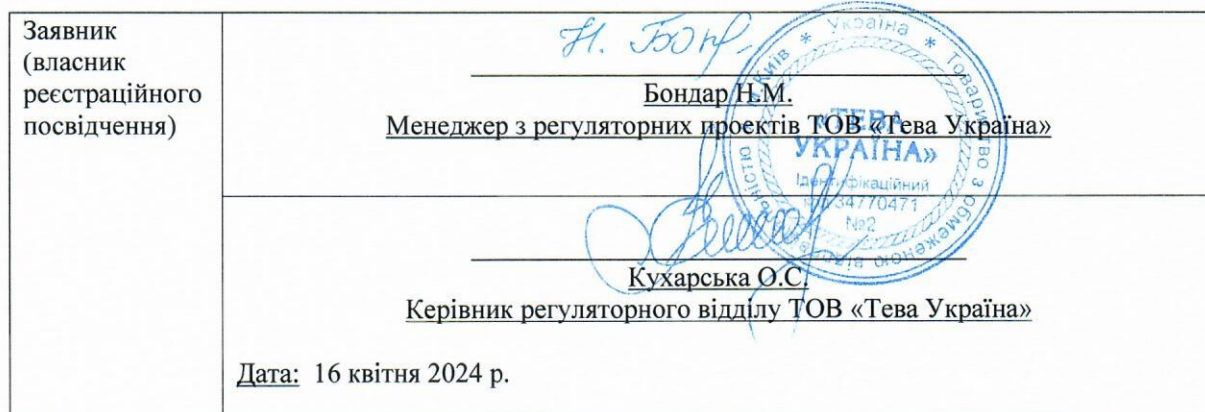 Заявник
(власник
реєстраційного
посвідчення)
Н. Бон
Бондар Н.М.
Менеджер з регуляторних проектів ТОВ «Тева Україна»
Кухарська О.С.
Керівник регуляторного відділу ТОВ «Тева Україна»
Дата: 16 квітня 2024 р.
* Україна * Товариство з обмеженою м. Київ
«ТЕВА
УКРАЇНА»
Ідентифікаційний
34770471
№2